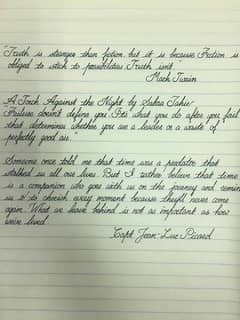 "Truth is stranger than fiction but it is because Fiction is
obliged to stick to possibilities Truth isn't."
Mark Twain
A Torch Against the Night by Sabaa Tahir
Failure doesn't define you. It's what you do after you fail
that determines whether you are a leader or a waste of
perfectly good air."
Someone once told me that time was a predator that
stalked us all our lives. But I rather believe that time
is a companion who goes with us on the journey and remin
us to cherish every moment because they'll never come
again. What we leave behind is not as important as how
we've lived.
Capt. Jean-Luc Picard